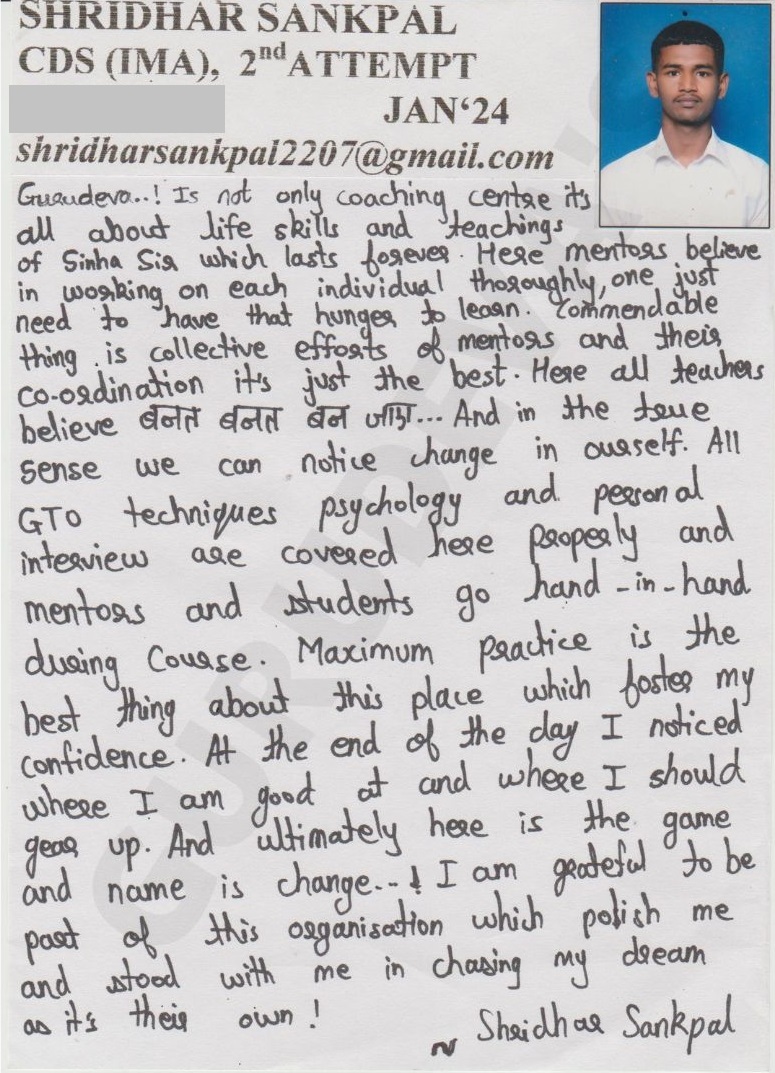 SHRIDHAR SANKPAL
CDS (IMA), 2nd ATTEMPT
JAN‘24
shridharsankpal2207@gmail.com
Gurudeva..! Is not only coaching centre it's
all about life skills and teachings
of Sinha Sir which lasts forever. Here mentors believe
in working on each individual thoroughly, one just
need to have that hunger to learn. Commendable
thing is collective efforts of mentors and their
co-ordination it's just the best. Here all teachers
believe बनत बनत बन जाए... And in the true
sense we can notice change in ourself. All
GTO techniques psychology and personal
interview are covered here properly and
mentors and students go hand-in-hand
during Course. Maximum practice is the
best thing about this place which foster my
confidence. At the end of the day I noticed
where I am good at and where I should
gear up. And ultimately here is the game
and name is change...! I am grateful to be
part of this organisation which polish me
and stood with me in chasing my dream
as it's their own!
~ Shridhar Sankpal
GURUDEVA'S